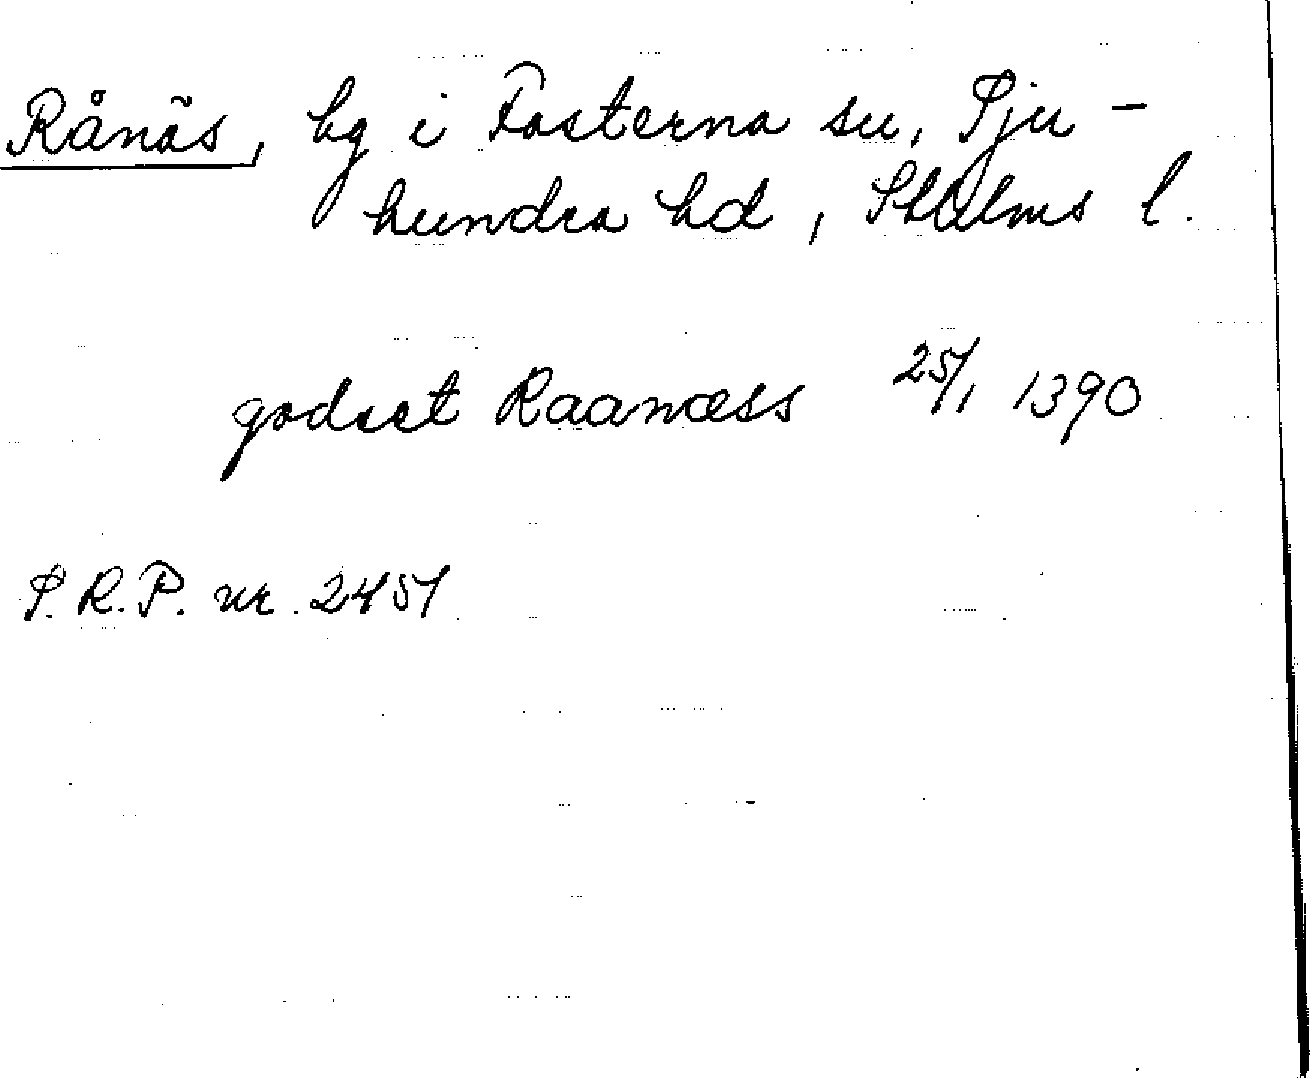 Rånäs, hg i Fasterna sn, Sju-
hundra hd, Sthlms l.
godset Raanæss 25/1 1390
S.R.P. nr. 2451